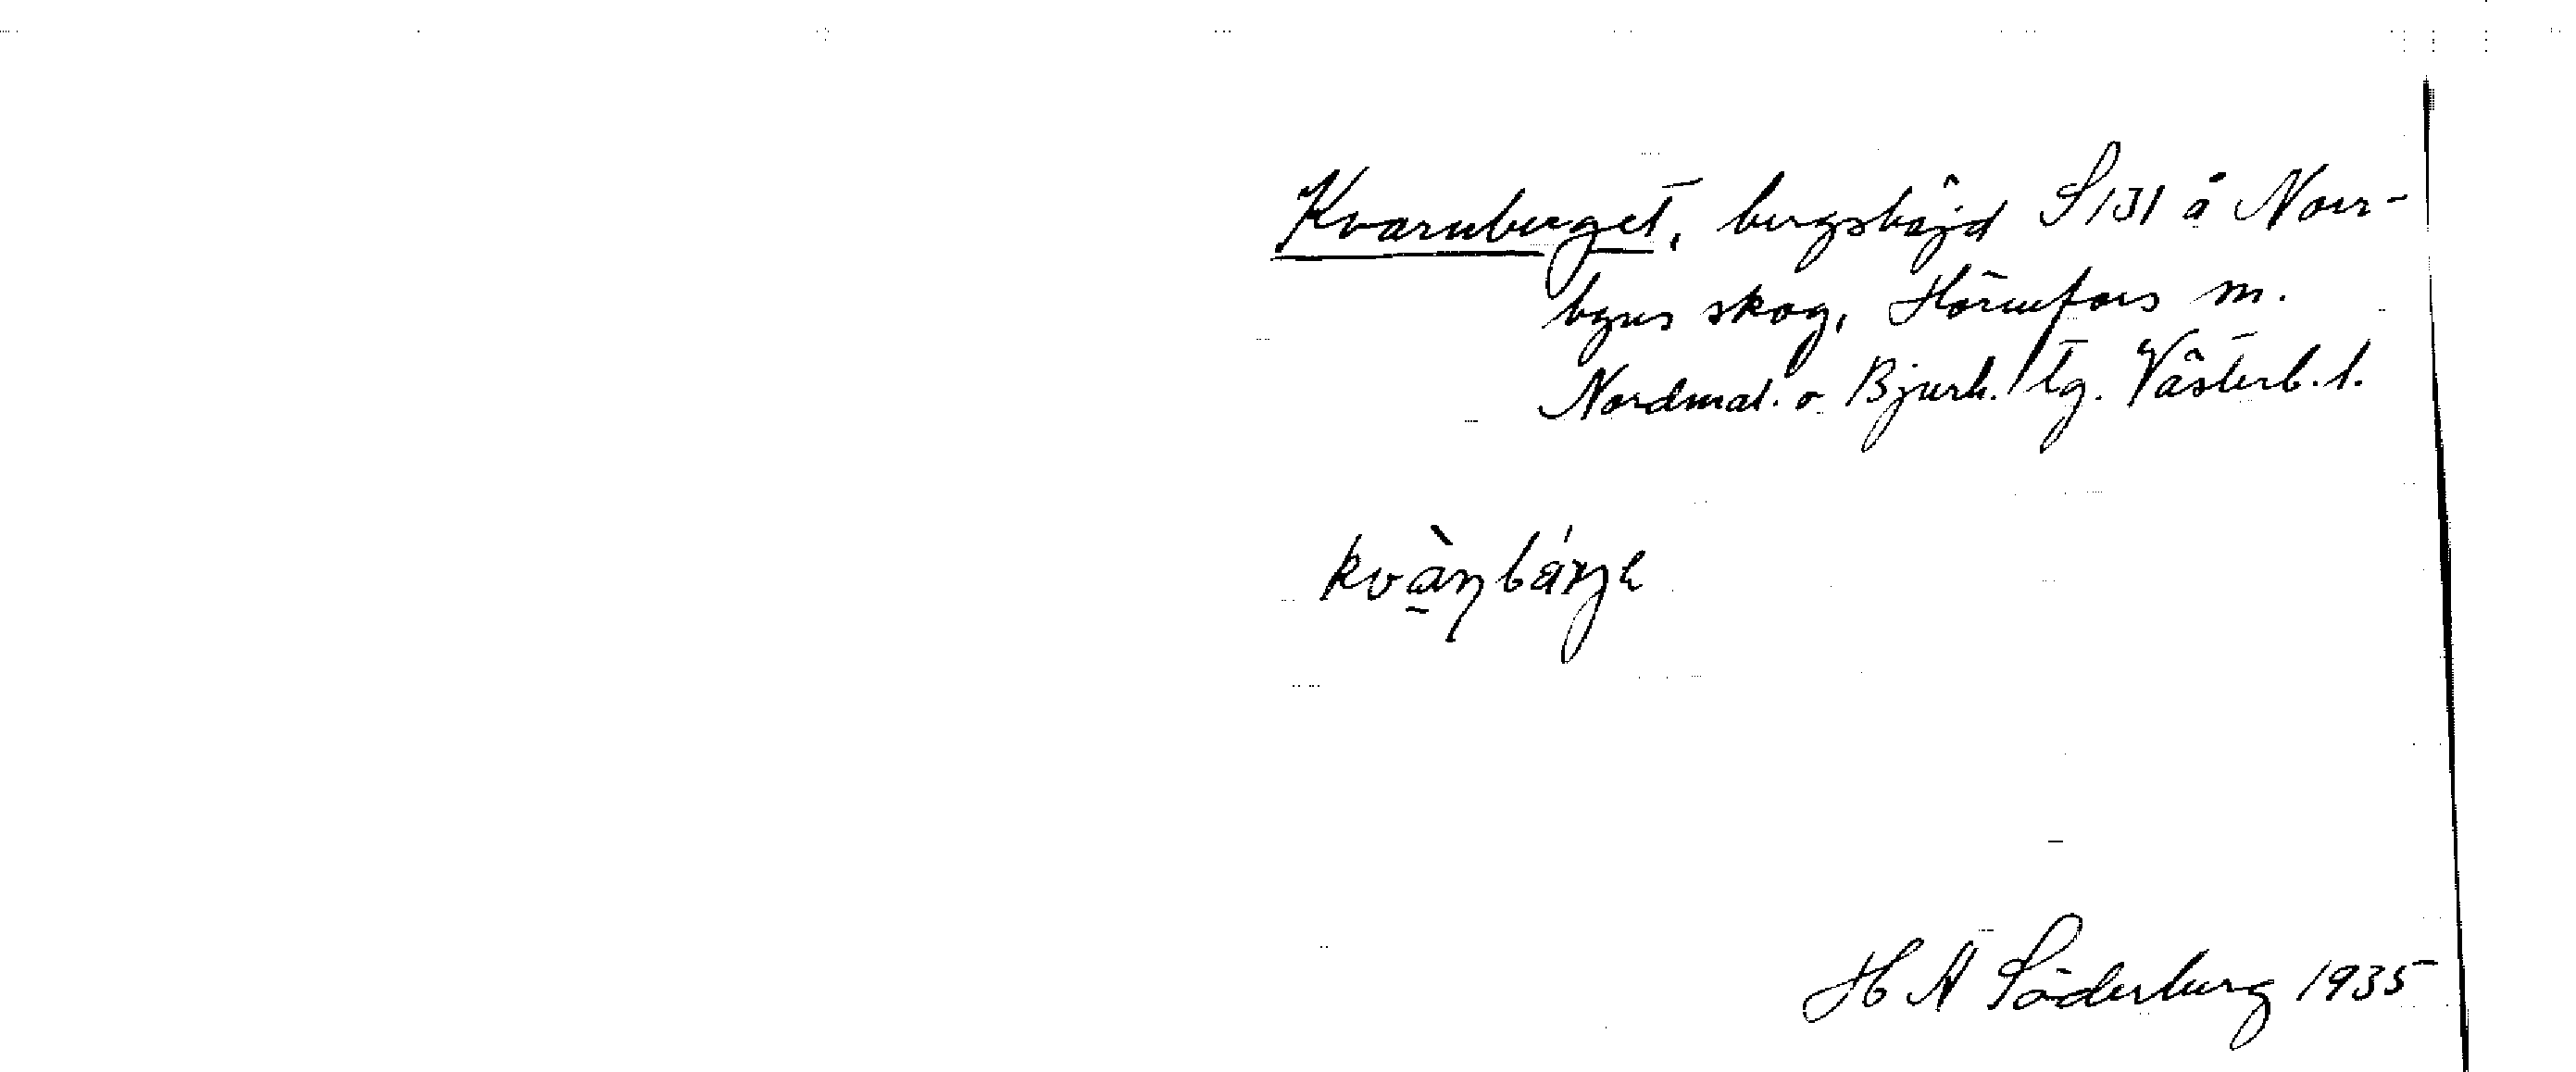 Kvarnberget, bergshöjd S 131 å Norr-
byns skog, Hörnefors m.
Nordmal. o Bjurh. tg. Västerb. l.
kvàɳbárjɛ
H A Söderberg 1935